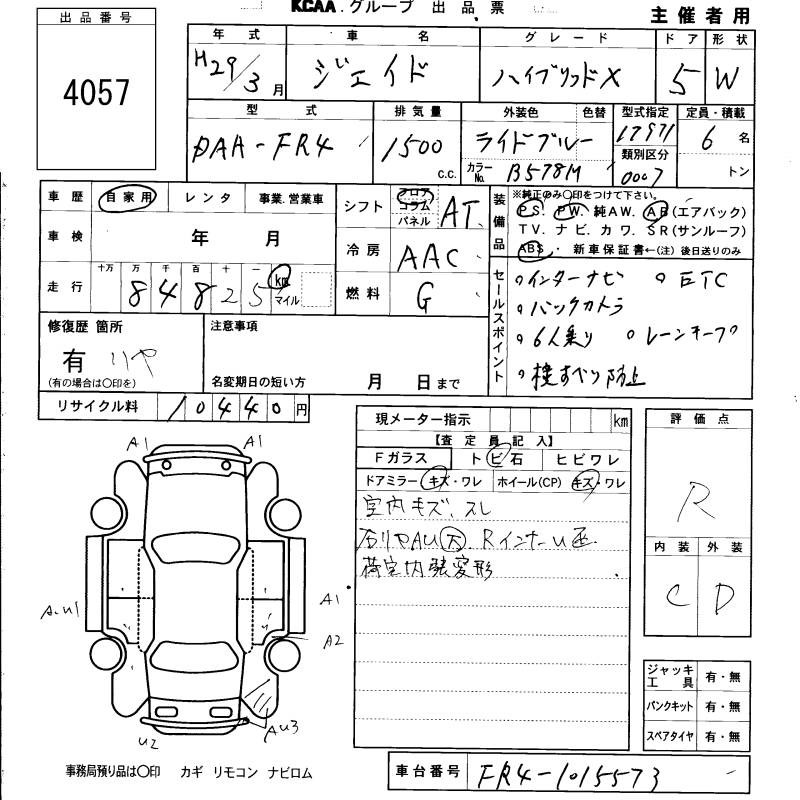 KCAA.グループ 出品票
主催者用
出品番号
4057
年式 車名 グレード ドア 形状
H29/3月 ジェイド ハイブリッドX 5 W
型式 排気量 外装色 色替 型式指定 定員・積載
DAA-FR4 1500 c.c. ライトブルー 17971 6名
カラーNo. B578M 類別区分 0007 トン
車歴 自家用 レンタ 事業.営業車
車検 年 月
走行 十万 万 千 百 十 一
84825 km マイル
シフト フロア コラム パネル AT
冷房 AAC
燃料 G
装備品
※純正のみ○印をつけて下さい。
PS. PW. 純AW. AB(エアバック)
TV. ナビ. カワ. SR(サンルーフ)
ABS . 新車保証書←(注)後日送りのみ
セールスポイント
○インターナビ ○ETC
○バックカメラ
○6人乗り ○レーンキープ
○横すべり防止
修復歴 箇所
有 リヤ
(有の場合は○印を)
注意事項
名変期日の短い方 月 日まで
リサイクル料 10440円
現メーター指示 km
【査定員記入】
Fガラス トビ石 ヒビワレ
ドアミラー キズ・ワレ ホイール(CP) キズ・ワレ
室内キズ、スレ
右リヤAU大 RインナーU凹
荷室内張変形
評価点
R
内装 外装
C D
A1 A1
A.U1
A1
A2
U2
AU3
ジャッキ工具 有・無
パンクキット 有・無
スペアタイヤ 有・無
事務局預り品は○印 カギ リモコン ナビロム
車台番号 FR4-1015573